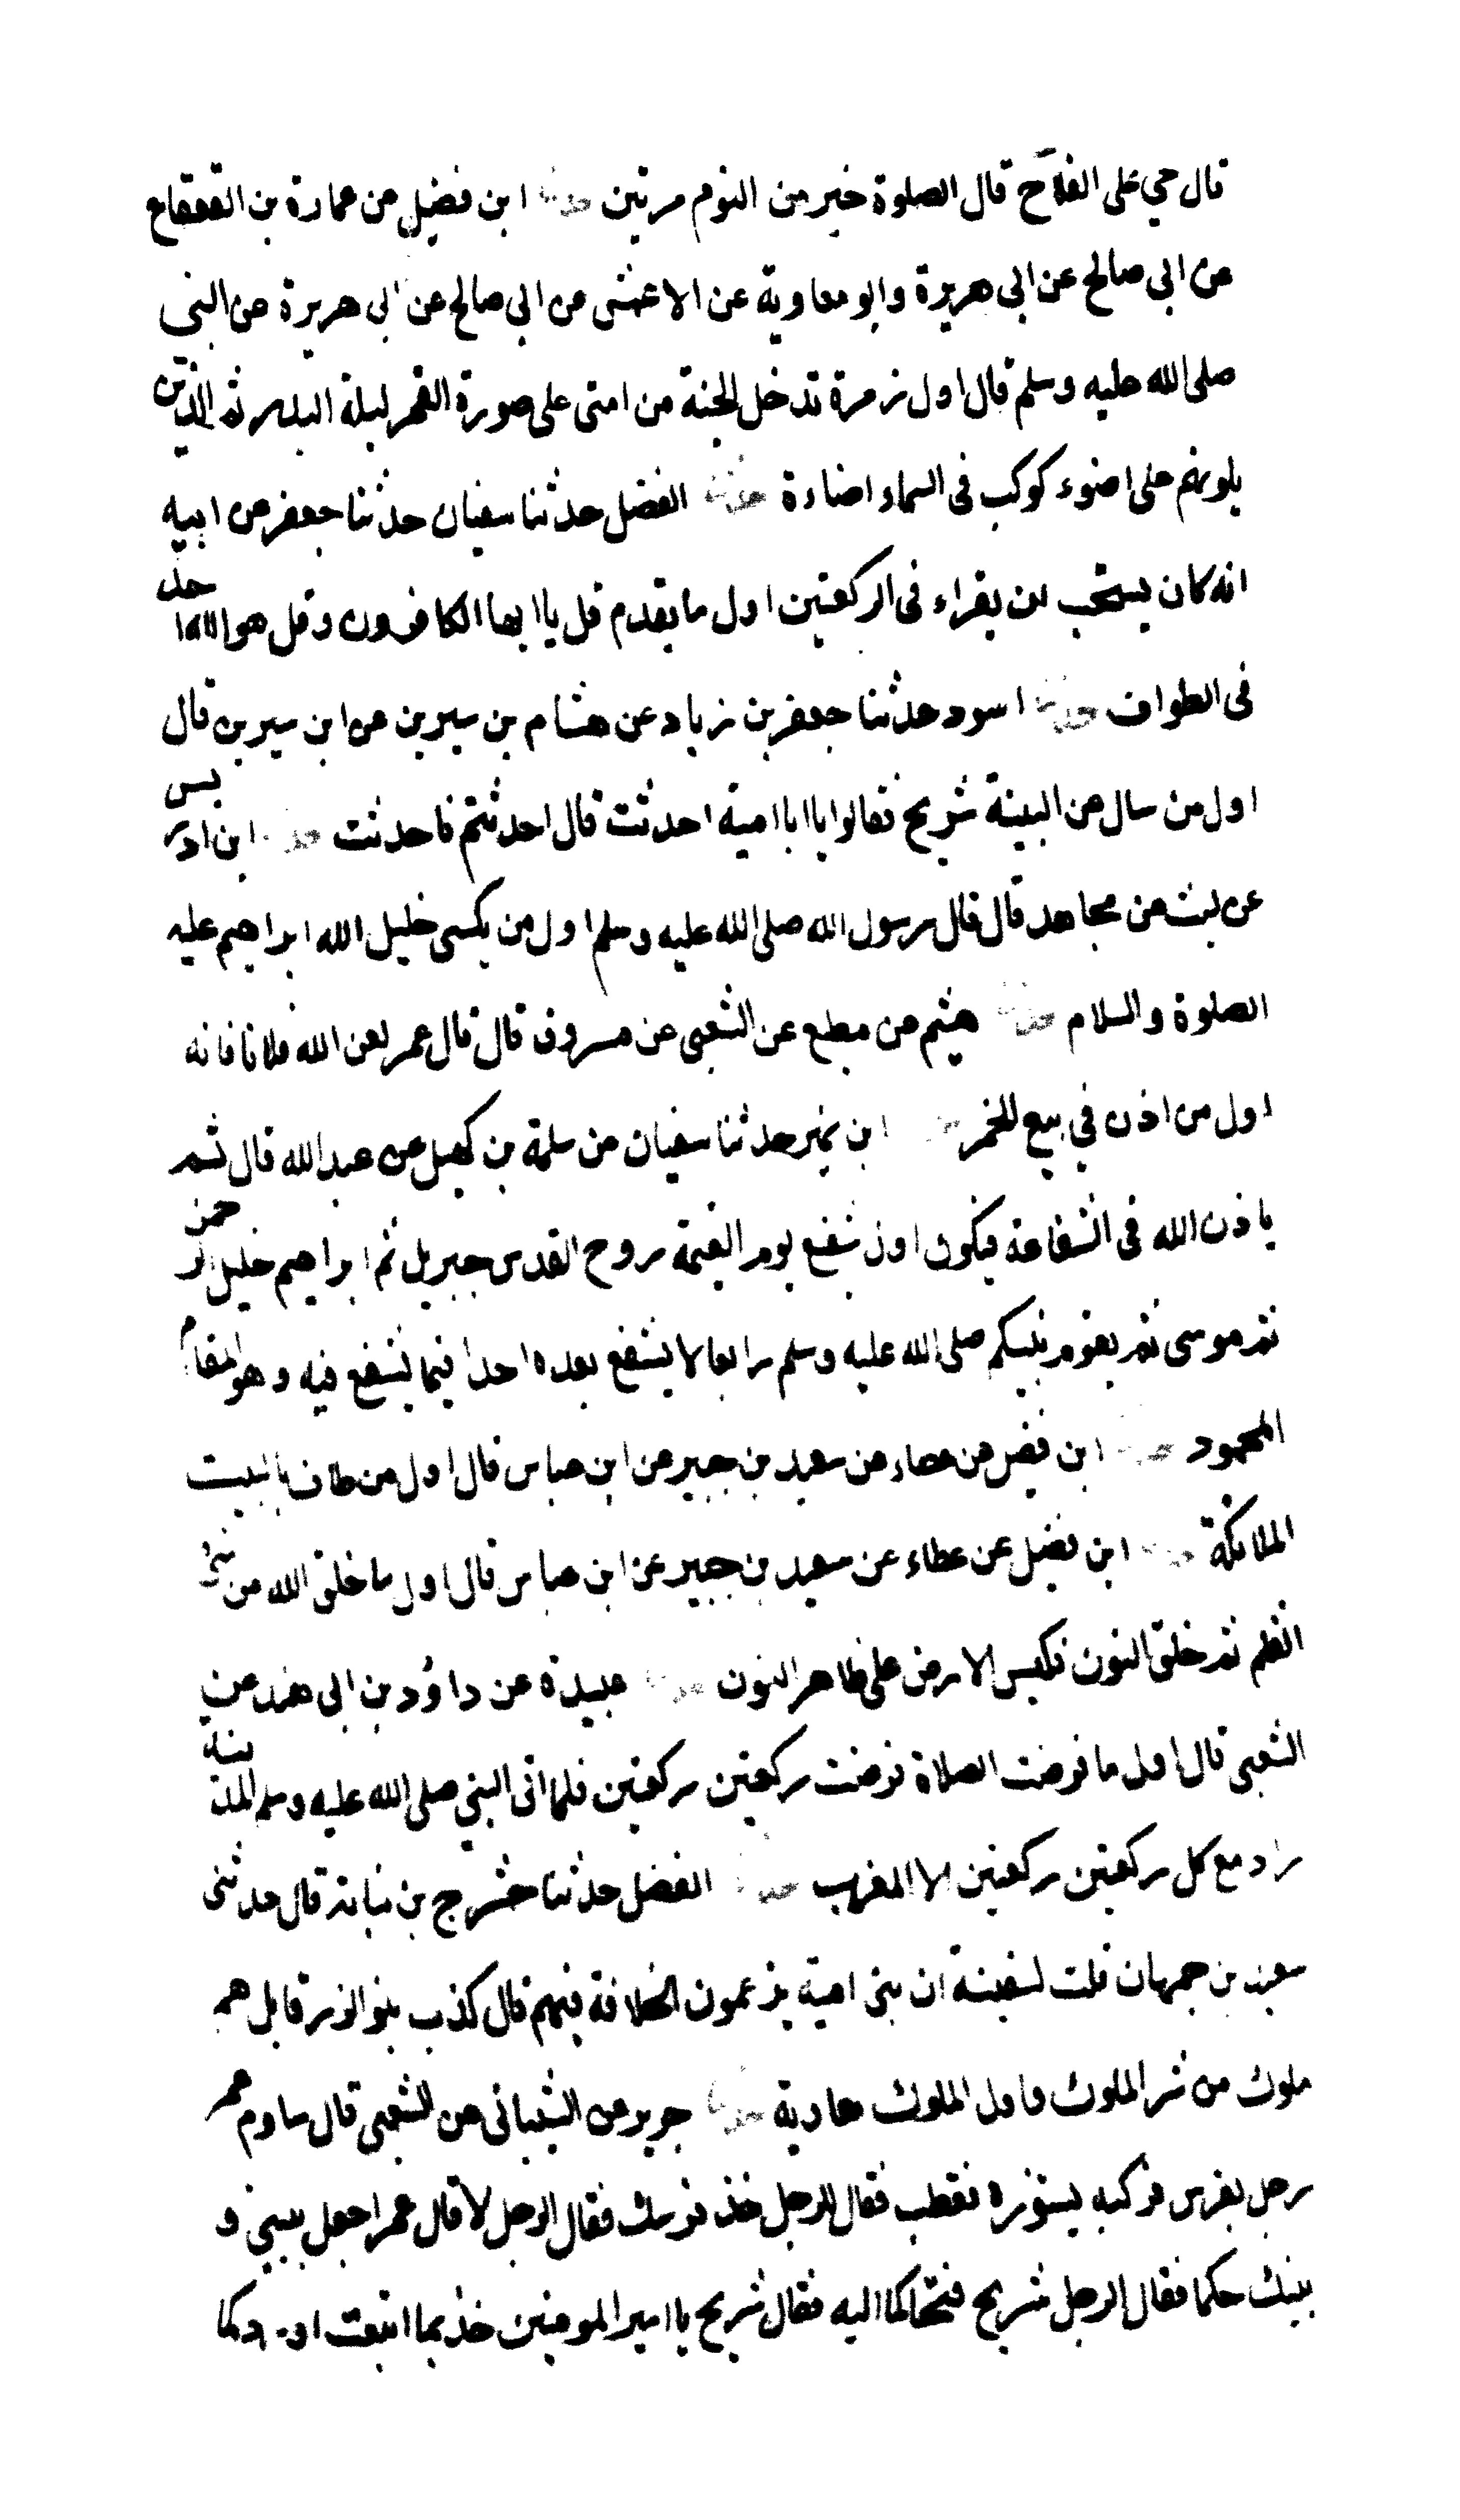 قال حي على الفلاح قال الصلوة خير من النوم مرتين حدثنا ابن فضيل عن عمارة بن القعقاع
عن ابي صالح عن ابي هريرة وابو معاوية عن الاعمش عن ابي صالح عن ابي هريرة عن النبي
صلى الله عليه وسلم قال اول زمرة تدخل الجنة من امتى على صورة القمر ليلة البدر ثم الذين
يلونهم على اضوء كوكب فى السماء اضاءة حدثنا الفضل حدثنا سفيان حدثنا جعفر عن ابيه
انه كان يستحب ان يقراء فى الركعتين اول ما يقدم قل يا ايها الكافرون وقل هو الله احد
فى الطواف حدثنا اسود حدثنا جعفر بن زياد عن هشام بن سيرين عن ابن سيرين قال
اول من سال عن البينة شريح فقالوا يا ابا امية احدثت قال احدثتم فاحدثت حدثنا ابن ادريس
عن ليث عن مجاهد قال قال رسول الله صلى الله عليه وسلم اول من يكسى خليل الله ابراهيم عليه
الصلوة والسلام حدثنا هيثم عن مطيع عن الشعبى عن مسروق قال قال عمر لعن الله فلانا فانه
اول من اذن في بيع الخمر حدثنا ابن نمير حدثنا سفيان عن سلمة بن كهيل عن عبد الله قال ثم
ياذن الله فى الشفاعة فيكون اول شفيع يوم القيمة روح القدس جبريل ثم ابراهيم خليل الرحمن
ثم موسى ثم يقوم نبيكم صلى الله عليه وسلم رابعا لا يشفع بعده احدا فيما يشفع فيه وهو المقام
المحمود حدثنا ابن فضيل عن عطاء عن سعيد بن جبير عن ابن عباس قال اول من طاف بالبيت
الملائكة حدثنا ابن فضيل عن عطاء عن سعيد بن جبير عن ابن عباس قال اول ما خلق الله من شئ
القلم ثم خلق النون فكبس الارض على ظاهر النون حدثنا عبيدة عن داؤد بن ابى هند عن
الشعبى قال اول ما فرضت الصلاة فرضت ركعتين ركعتين فلما اتى النبي صلى الله عليه وسلم المدينة
زاد مع كل ركعتين ركعتين الا المغرب حدثنا الفضل حدثنا حشرج بن نباتة قال حدثنى
سعيد بن جمهان قلت لسفينة ان بنى امية يزعمون الخلافة فيهم قال كذب بنو الزرقا بل هم
ملوك من شر الملوك واول الملوك معاوية حدثنا جرير عن الشيبانى عن الشعبى قال ساوم عمر
رجل بفرس فركبه يشوره فعطب فقال للرجل خذ فرسك فقال الرجل لا قال عمر اجعل بيني و
بينك حكما فقال الرجل شريح فتحاكما اليه فقال شريح يا امير المومنين خذ بما ابتعت او رد كما